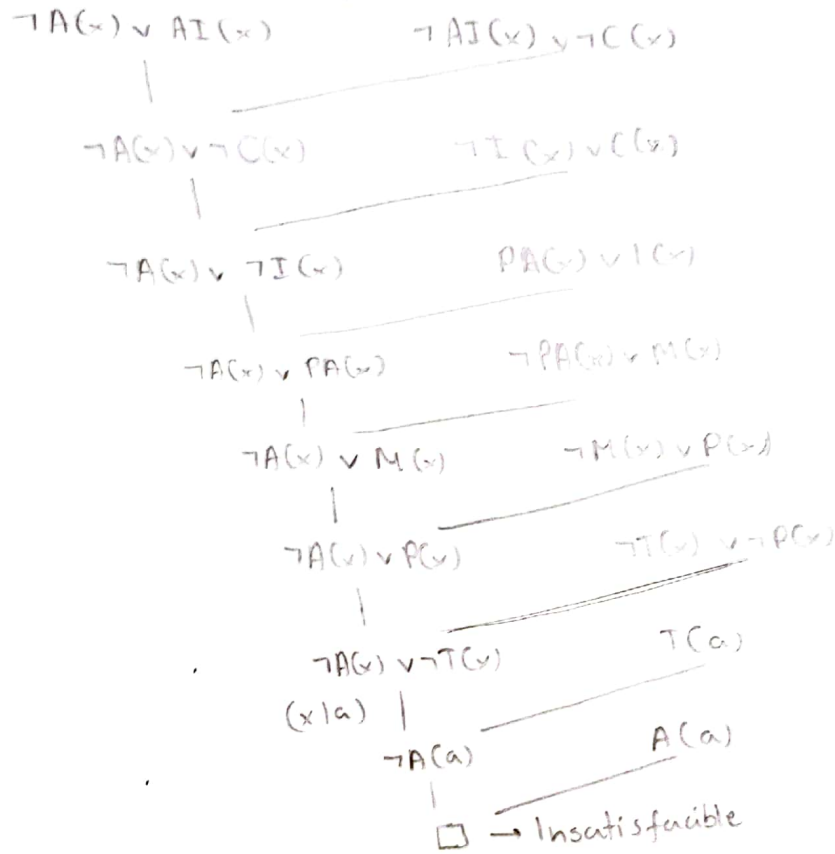 ¬A(x) ∨ AI(x) ¬AI(x) ∨ ¬C(x)
¬A(x) ∨ ¬C(x) ¬I(x) ∨ C(x)
¬A(x) ∨ ¬I(x) PA(x) ∨ I(x)
¬A(x) ∨ PA(x) ¬PA(x) ∨ M(x)
¬A(x) ∨ M(x) ¬M(x) ∨ P(x)
¬A(x) ∨ P(x) ¬T(x) ∨ ¬P(x)
¬A(x) ∨ ¬T(x) T(a)
(x|a)
¬A(a) A(a)
□ → Insatisfacible